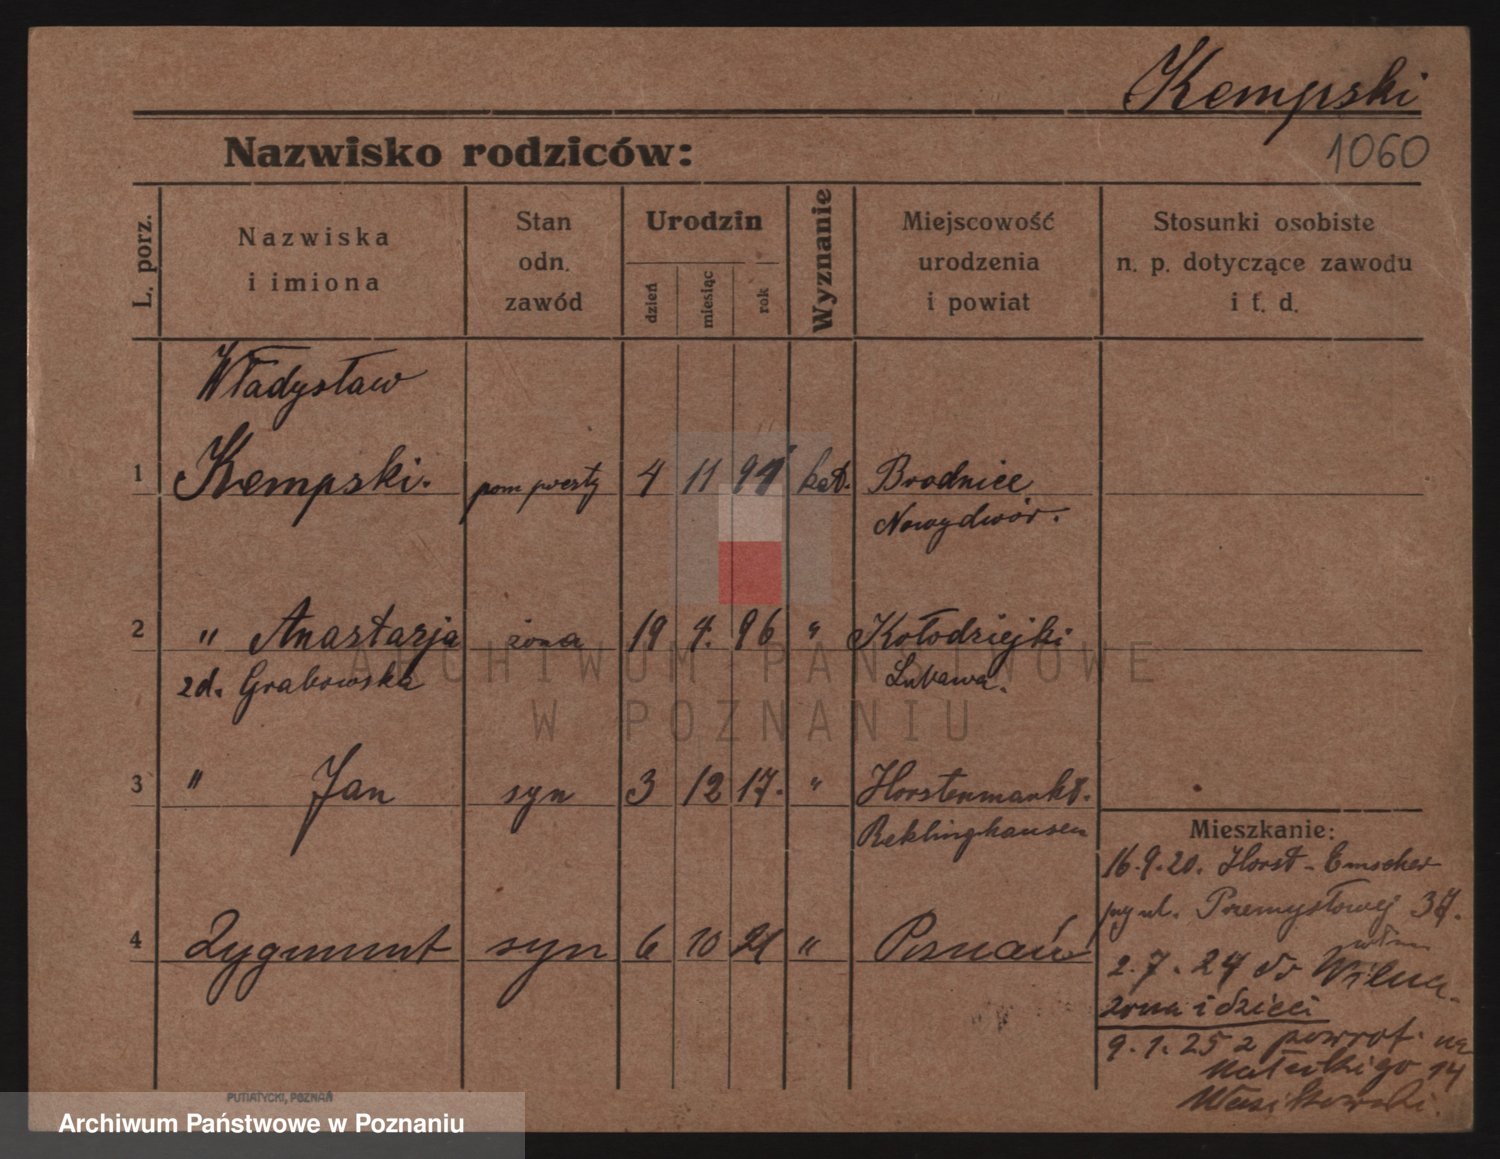 Kempski
1060
Nazwisko rodziców:
L. porz.
Nazwiska
i imiona
Stan
odn.
zawód
Urodzin
dzień
miesiąc
rok
Wyznanie
Miejscowość
urodzenia
i powiat
Stosunki osobiste
n. p. dotyczące zawodu
i t. d.
Władysław
1 Kempski. pom poczty 4 11 91 kat. Brodnice
Nowydwór.
2 " Anastazja żona 19 4. 96 " Kołodziejki
zd. Grabowska Lubawa.
3 " Jan syn 3 12 17. " Horstenmarkt.
Reklinghausen
Mieszkanie:
16.9.20. Horst-Emscher
przy ul. Przemysłowej 37.
4 Zygmunt syn 6 10 21 " Poznań
2.7.24 do Wilna.
żona i dzieci
9.1.25 z powrot. na
14
ARCHIWUM PAŃSTWOWE
W POZNANIU
PUTIATYCKI, POZNAŃ
Archiwum Państwowe w Poznaniu